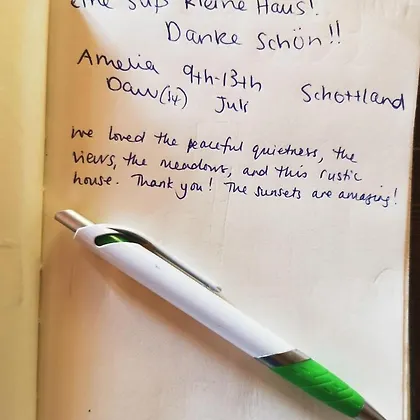 eine süß kleine Haus!
Danke schön!!
Amelia 9th-13th Schottland
Daw (14) Juli
we loved the peaceful quietness, the
views, the meadows, and this rustic
house. Thank you! The sunsets are amazing!